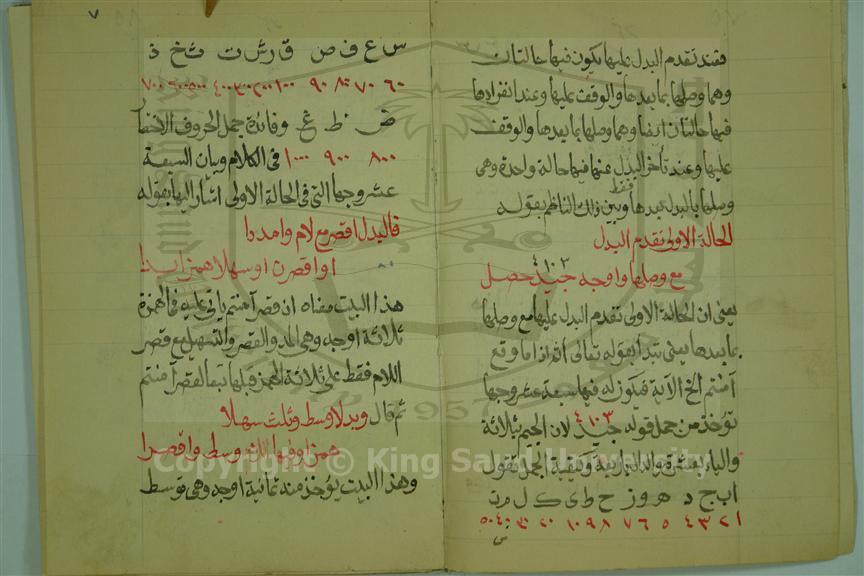 فعند تقدم البدل عليها يكون فيها حالتان
وهما وصلها بما بعدها والوقف عليها وعند انفرادها
فيها حالتان ايضا وهما وصلها بما بعدها والوقف
عليها وعند تأخر البدل عنها فيها حالة واحدة وهى
وصلها بالبدل بعدها فقط وبين ذلك الناظم بقوله
الحالة الاولى تقدم البدل
مع وصلها واوجه جيد حصل
٣ ١٠ ٤
يعنى ان الحالة الاولى تقدم البدل عليها مع وصلها
بما بعدها يعنى تبدأ بقوله تعالى أثم اذا ما وقع
آمنتم الخ الآية فيكون له فيها سبعة عشر وجها
تؤخذ من جمل قوله جيد لان الجيم بثلاثة
٣ ١٠ ٤
والياء بعشرة والدال باربعة وكيفية الجمل تقول
ا ب ج د ه و ز ح ط ى ك ل م ن
١ ٢ ٣ ٤ ٥ ٦ ٧ ٨ ٩ ١٠ ٢٠ ٣٠ ٤٠ ٥٠
س
٧
س ع ف ص ق ر ش ت ث خ ذ
٦٠ ٧٠ ٨٠ ٩٠ ١٠٠ ٢٠٠ ٣٠٠ ٤٠٠ ٥٠٠ ٦٠٠ ٧٠٠
ض ظ غ وفائدة جمل الحروف الاختصار
٨٠٠ ٩٠٠ ١٠٠٠ فى الكلام وبيان السبعة
عشر وجها التى فى الحالة الاولى اشار اليها بقوله
فالبدل اقصر مع لام وامددا
او اقصرن او سهلا همز ابدا
هذا البيت معناه ان قصر آمنتم يأتى عليه فى الهمزة
ثلاثة اوجه وهى المد والقصر والتسهيل مع قصر
اللام فقط على ثلاثة الهمز قبلها تبعا لقصر آمنتم
ثم قال وبدلا وسط وثلث سهلا
همزا وفيها اللام وسط واقصرا
وهذا البيت يؤخذ منه ثمانية اوجه وهى توسط
Copyright © King Saud University
1957